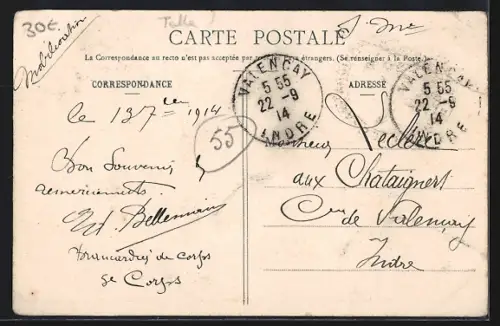 30€
Mobilisation
CARTE POSTALE
La Correspondance au recto n'est pas acceptée par tous les pays étrangers. (Se renseigner à la Poste.)
CORRESPONDANCE
le 13 7bre 1914
Bon Souvenir &
remerciements
Ed. Bellemain
brancardier de corps
9e Corps
55
VALENCAY
5 55
22 - 9
14
INDRE
ADRESSE
VALENCAY
5 55
22 - 9
14
INDRE
Monsieur Leclerc
aux Chataigniers
Cne de Valençay
Indre